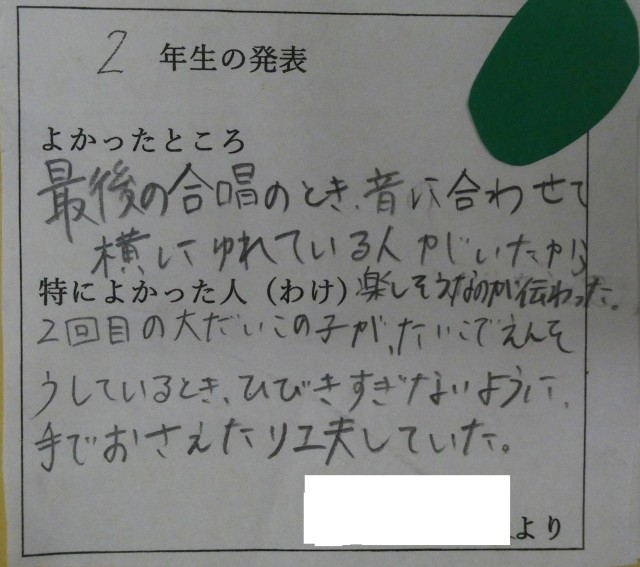 2 年生の発表
よかったところ
最後の合唱のとき、音に合わせて
横にゆれている人がいたから
特によかった人(わけ)楽しそうなのが伝わった。
2回目の大だいこの子が、たいこでえんそ
うしているとき、ひびきすぎないように、
手でおさえたり工夫していた。
より